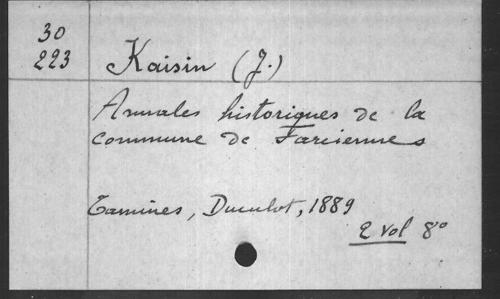 30
223
Kaisin (J.)
Annales historiques de la
commune de Farciennes
Tamines, Duculot, 1889
2 vol 8°